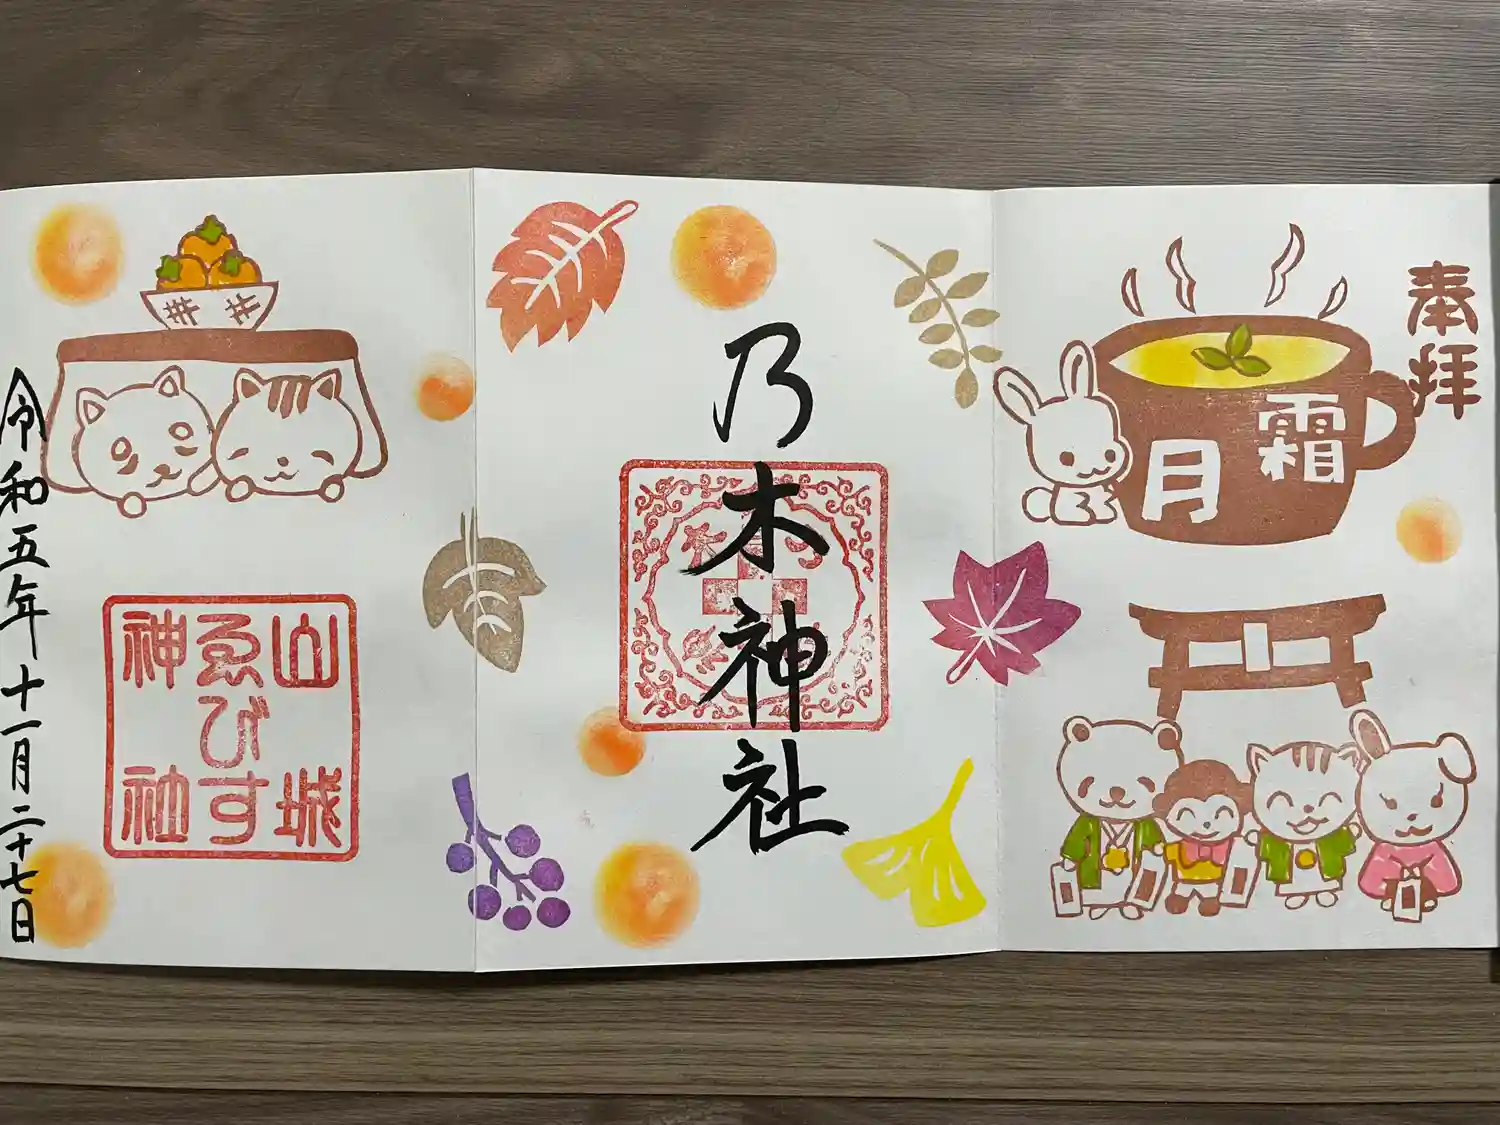 奉拝
霜月
乃木神社
山城
ゑびす
神社
令和五年十一月二十七日